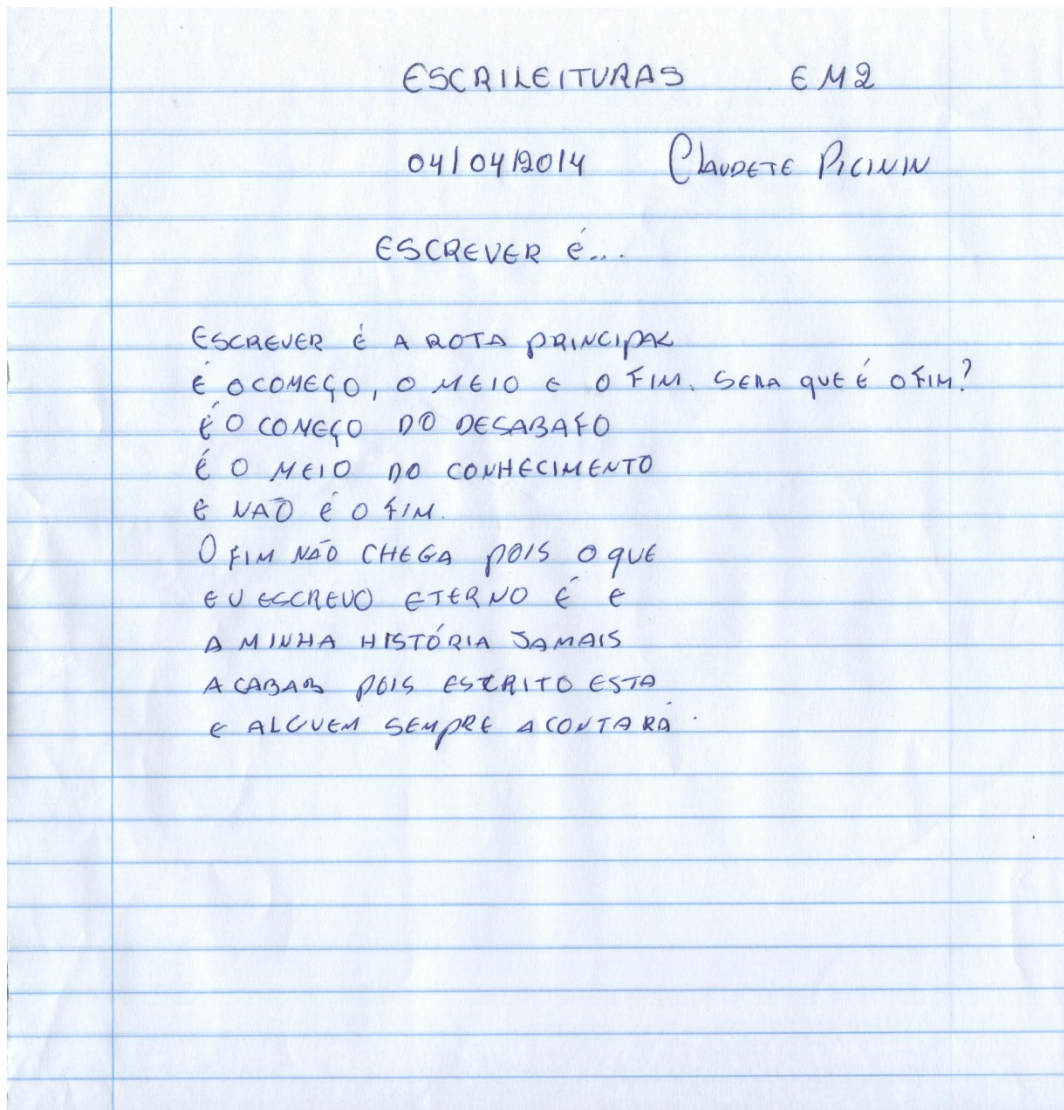 ESCRILEITURAS EM2
04/04/2014 CLAUDETE PICININ
ESCREVER É...
ESCREVER É A ROTA PRINCIPAL
É O COMEÇO, O MEIO E O FIM. SERA QUE É O FIM?
É O COMEÇO DO DESABAFO
É O MEIO DO CONHECIMENTO
E NÃO É O FIM.
O FIM NÃO CHEGA POIS O QUE
EU ESCREVO ETERNO É E
A MINHA HISTÓRIA JAMAIS
ACABAR POIS ESCRITO ESTA
E ALGUEM SEMPRE A CONTARÁ.